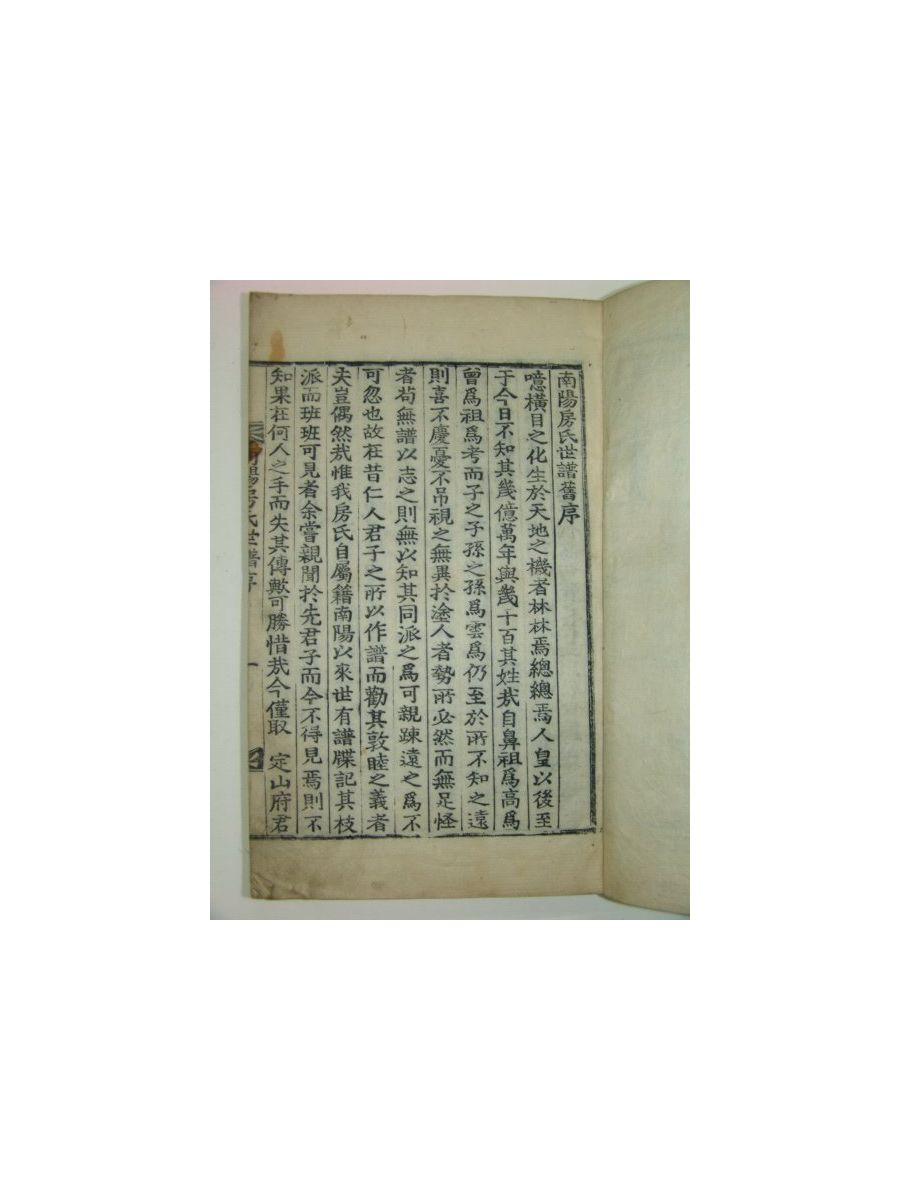 南陽房氏世譜舊序
噫橫目之化生於天地之機者林林焉總總焉人皇以後至
于今日不知其幾億萬年與幾千百其姓㢤自鼻祖爲高爲
曾爲祖爲考而子之子孫之孫爲雲爲仍至於所不知之遠
則喜不慶憂不吊視之無異於塗人者勢所必然而無足怪
者苟無譜以志之則無以知其同派之爲可親踈遠之爲不
可忽也故在昔仁人君子之所以作譜而勸其敦睦之義者
夫豈偶然㢤惟我房氏自屬籍南陽以來世有譜牒記其枝
派而班班可見者余嘗親聞於先君子而今不得見焉則不
知果在何人之手而失其傳歟可勝惜㢤今僅取 定山府君
陽房氏世譜序 一